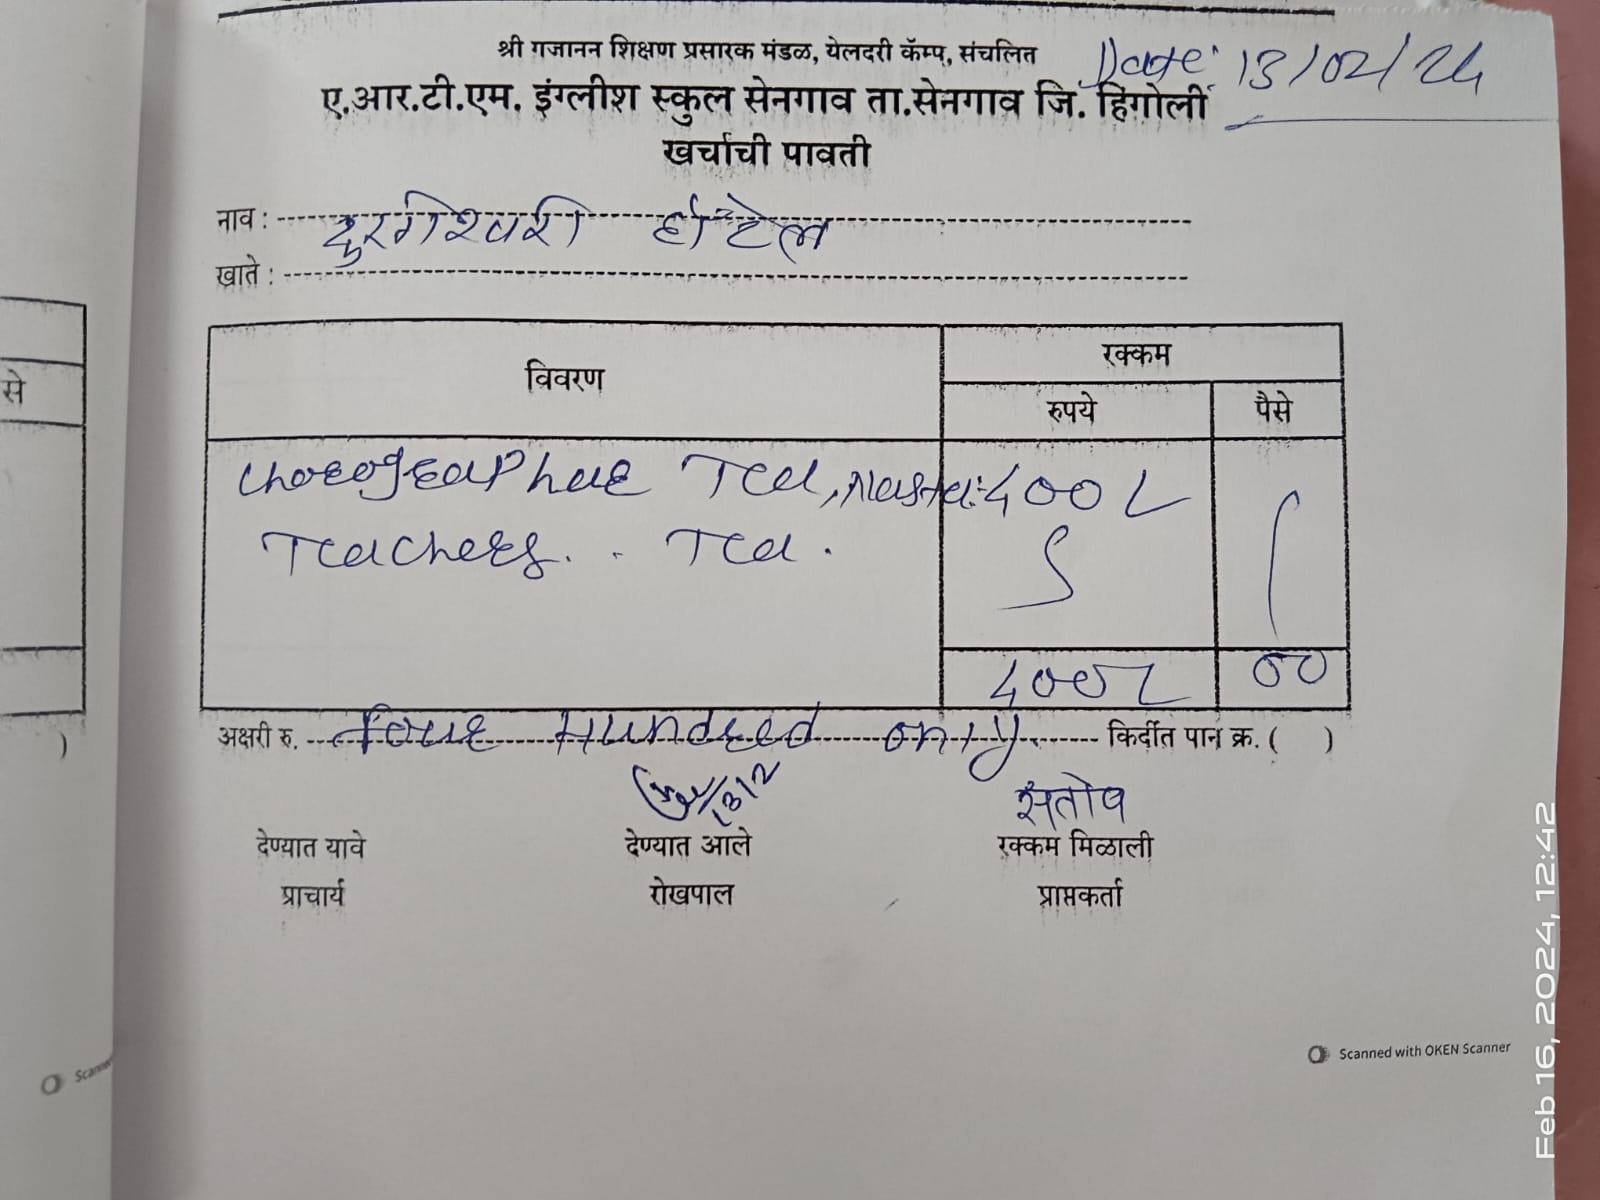 श्री गजानन शिक्षण प्रसारक मंडळ, येलदरी कॅम्प, संचलित
Date: 13/02/24
ए.आर.टी.एम. इंग्लीश स्कुल सेनगाव ता.सेनगाव जि. हिंगोली
खर्चाची पावती
नाव : दुरगेश्वरी हॉटेल
खाते :
विवरण
रक्कम
रुपये
पैसे
Choreographar Tea, Nasta: 400/-
Teachers.. Tea.
400/- 00
अक्षरी रु. Four Hundred only. किर्दीत पान क्र. ( )
13/2
संतोष
देण्यात यावे देण्यात आले रक्कम मिळाली
प्राचार्य रोखपाल प्राप्तकर्ता
से
)
Scanne
Scanned with OKEN Scanner
Feb 16, 2024, 12:42